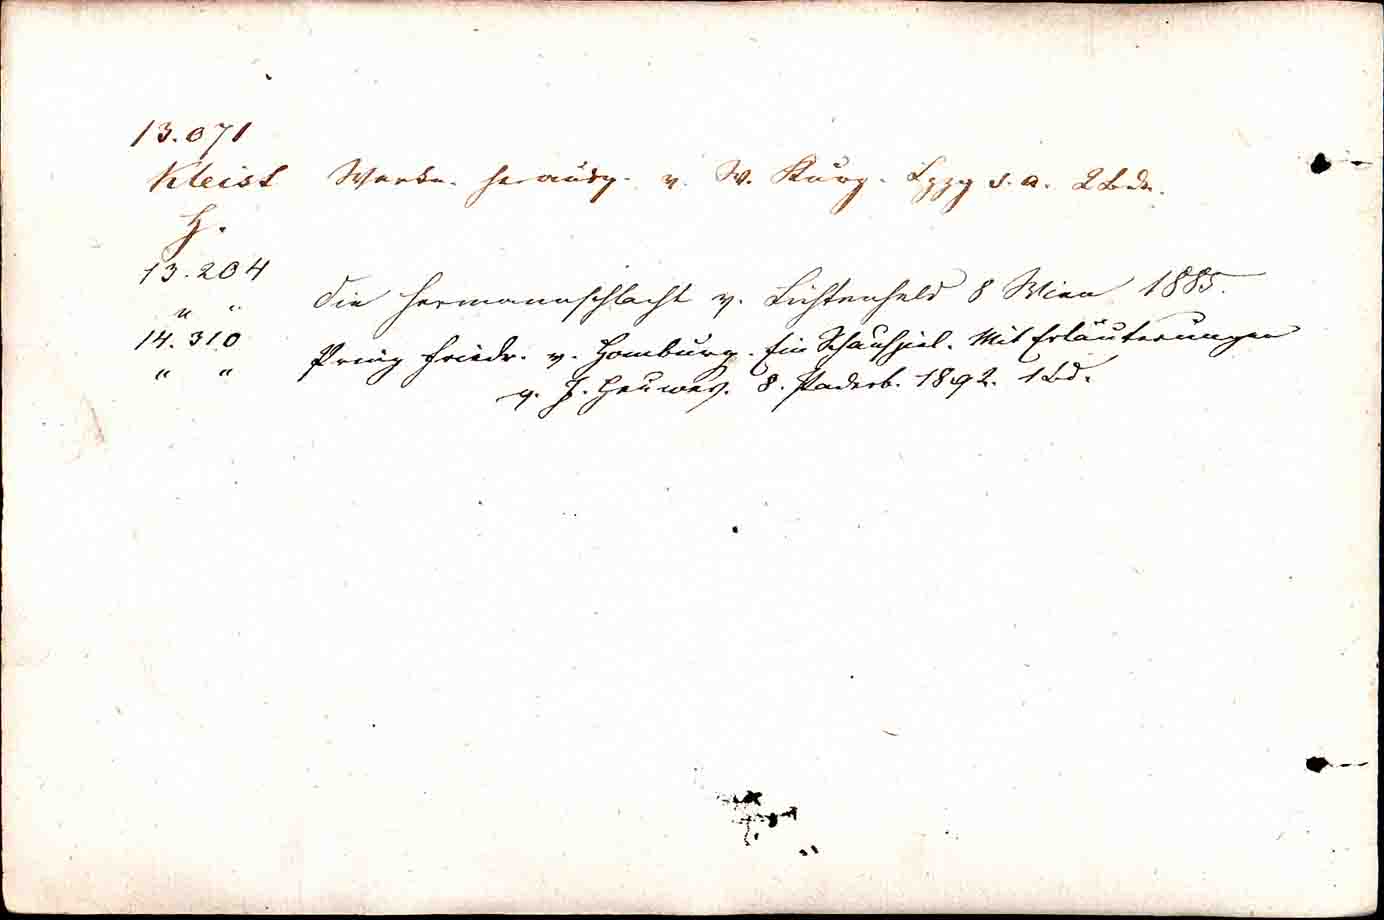 13.071
Kleist Werke. herausg. v. W. Kurz. Lpzg s. a. 2 Bde.
H.
13.204
" " Die Hermannschlacht v. Lichtenheld 8 Wien 1885.
14.310 Prinz Friedr. v. Homburg. Ein Schauspiel. Mit Erläuterungen
" " v. J. Heuwes. 8. Paderb. 1892. 1 Bd.